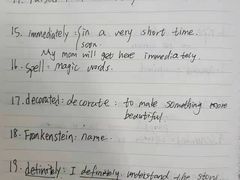 15. immediately: in a very short time.
soon.
My mom will get here immediately.
16. spell: magic words.
17. decorated: decorate: to make something more
beautiful.
18. Frankenstein: name.
19. definitely: I definitely understand the story